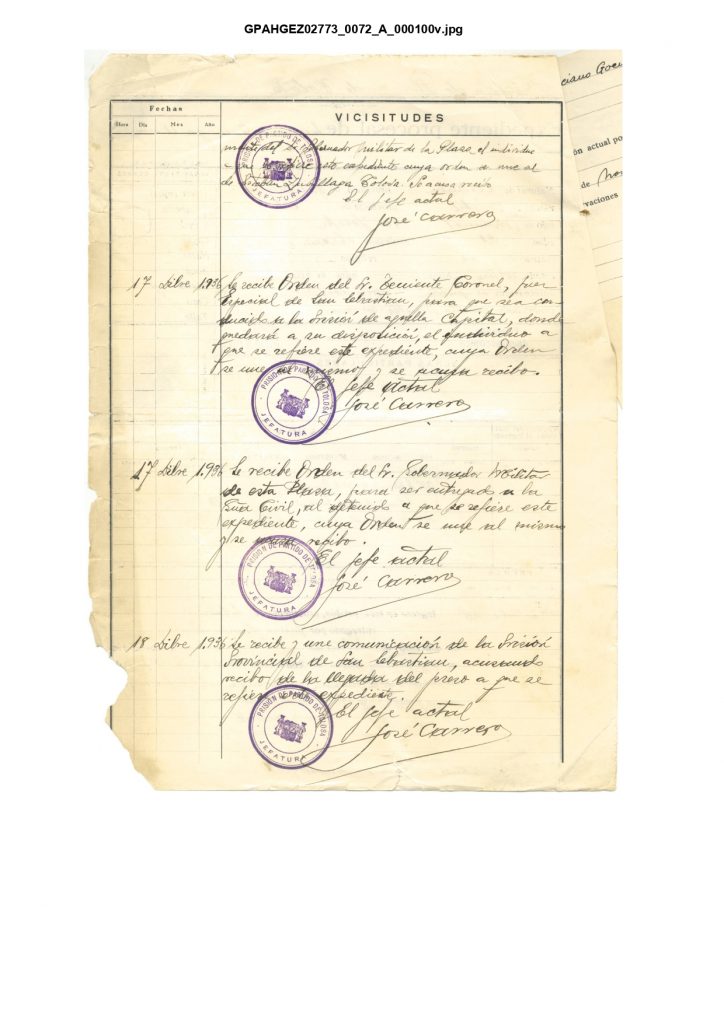 GPAHGEZ02773_0072_A_000100v.jpg
Fechas
VICISITUDES
Día Mes Año
Gobernador Militar de la Plaza el individuo
este expediente cuya orden se une al
de Tolosa
El Jefe actual
José Carrero
PRISIÓN DE PARTIDO DE TOLOSA
JEFATURA
17 Dibre 1.936 Se recibe Orden del Sr. Teniente Coronel, Juez
Especial de San Sebastian, para que sea con-
ducido a la Prisión de aquella Capital, donde
quedará a su disposición, el individuo a
que se refiere este expediente, cuya Orden
se une al mismo y se acusa recibo.
El Jefe actual
José Carrero
PRISIÓN DE PARTIDO DE TOLOSA
JEFATURA
17 Dibre 1.936 Se recibe Orden del Sr. Gobernador Militar
de esta Plaza, para ser entregado a la
Civil, al detenido a que se refiere este
expediente, cuya Orden se une al mismo
y se acusa recibo.
El Jefe actual
José Carrero
PRISIÓN DE PARTIDO DE TOLOSA
JEFATURA
18 Dibre 1.936 Se recibe y une comunicación de la Prisión
Provincial de San Sebastian, acusando
recibo de la llegada del preso a que se
refiere este expediente.
El Jefe actual
José Carrero
PRISIÓN DE PARTIDO DE TOLOSA
JEFATURA
ciano
ón actual po
de
vaciones